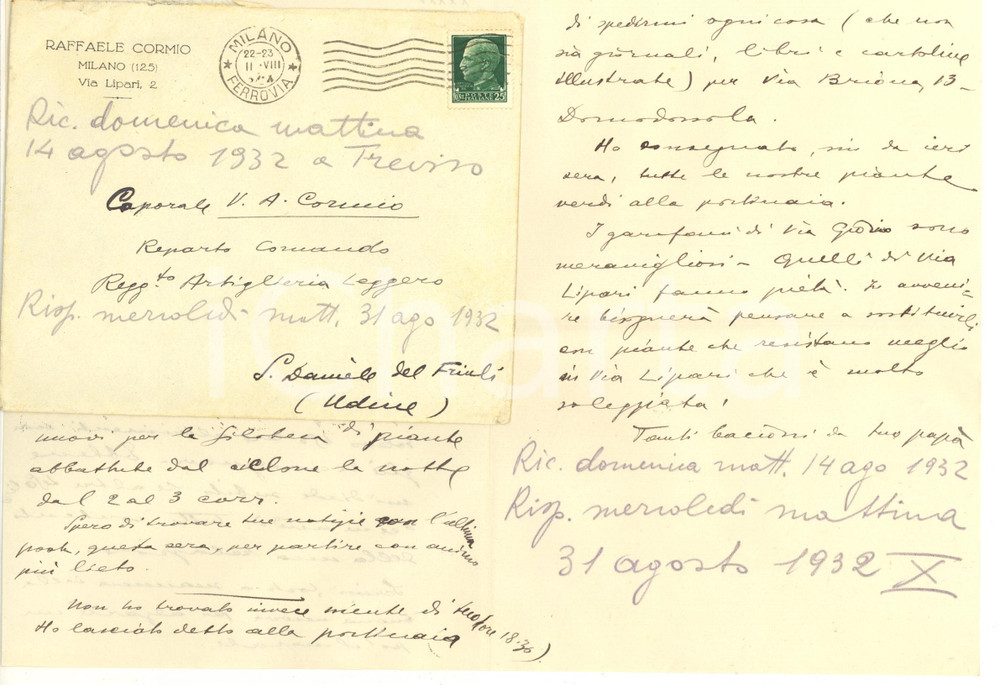 RAFFAELE CORMIO
MILANO (125)
Via Lipari, 2
MILANO
22-23
11 · VIII
FERROVIA
Ric. domenica mattina
14 agosto 1932 a Treviso
Caporale V. A. Cormio
Reparto Comando
Regg.to Artiglieria Leggero
Risp. mercoledì matt. 31 ago 1932
S. Daniele del Friuli
(Udine)
nuovi per la di piante
abbattute dal ciclone la notte
dal 2 al 3 corr.
Spero di trovare tue notizie con l'ultima
posta, questa sera, per partire con animo
più lieto.
Non ho trovato invece niente di tuo (ore 18.30)
Ho lasciato detto alla portinaia
di spedirmi ogni cosa (che non
sia giornali, libri e cartoline
illustrate) per Via Briona, 13 -
Domodossola.
Ho consegnato, sin da ieri
sera, tutte le nostre piante
verdi alla portinaia.
I garofani di Via sono
meravigliosi - Quelli di Via
Lipari fanno pietà. In avveni-
re bisognerà pensare a sostituirli
con piante che resistano meglio
in Via Lipari che è molto
soleggiata!
Tanti bacioni da tuo papà
Ric. domenica matt. 14 ago 1932
Risp. mercoledì mattina
31 agosto 1932 X